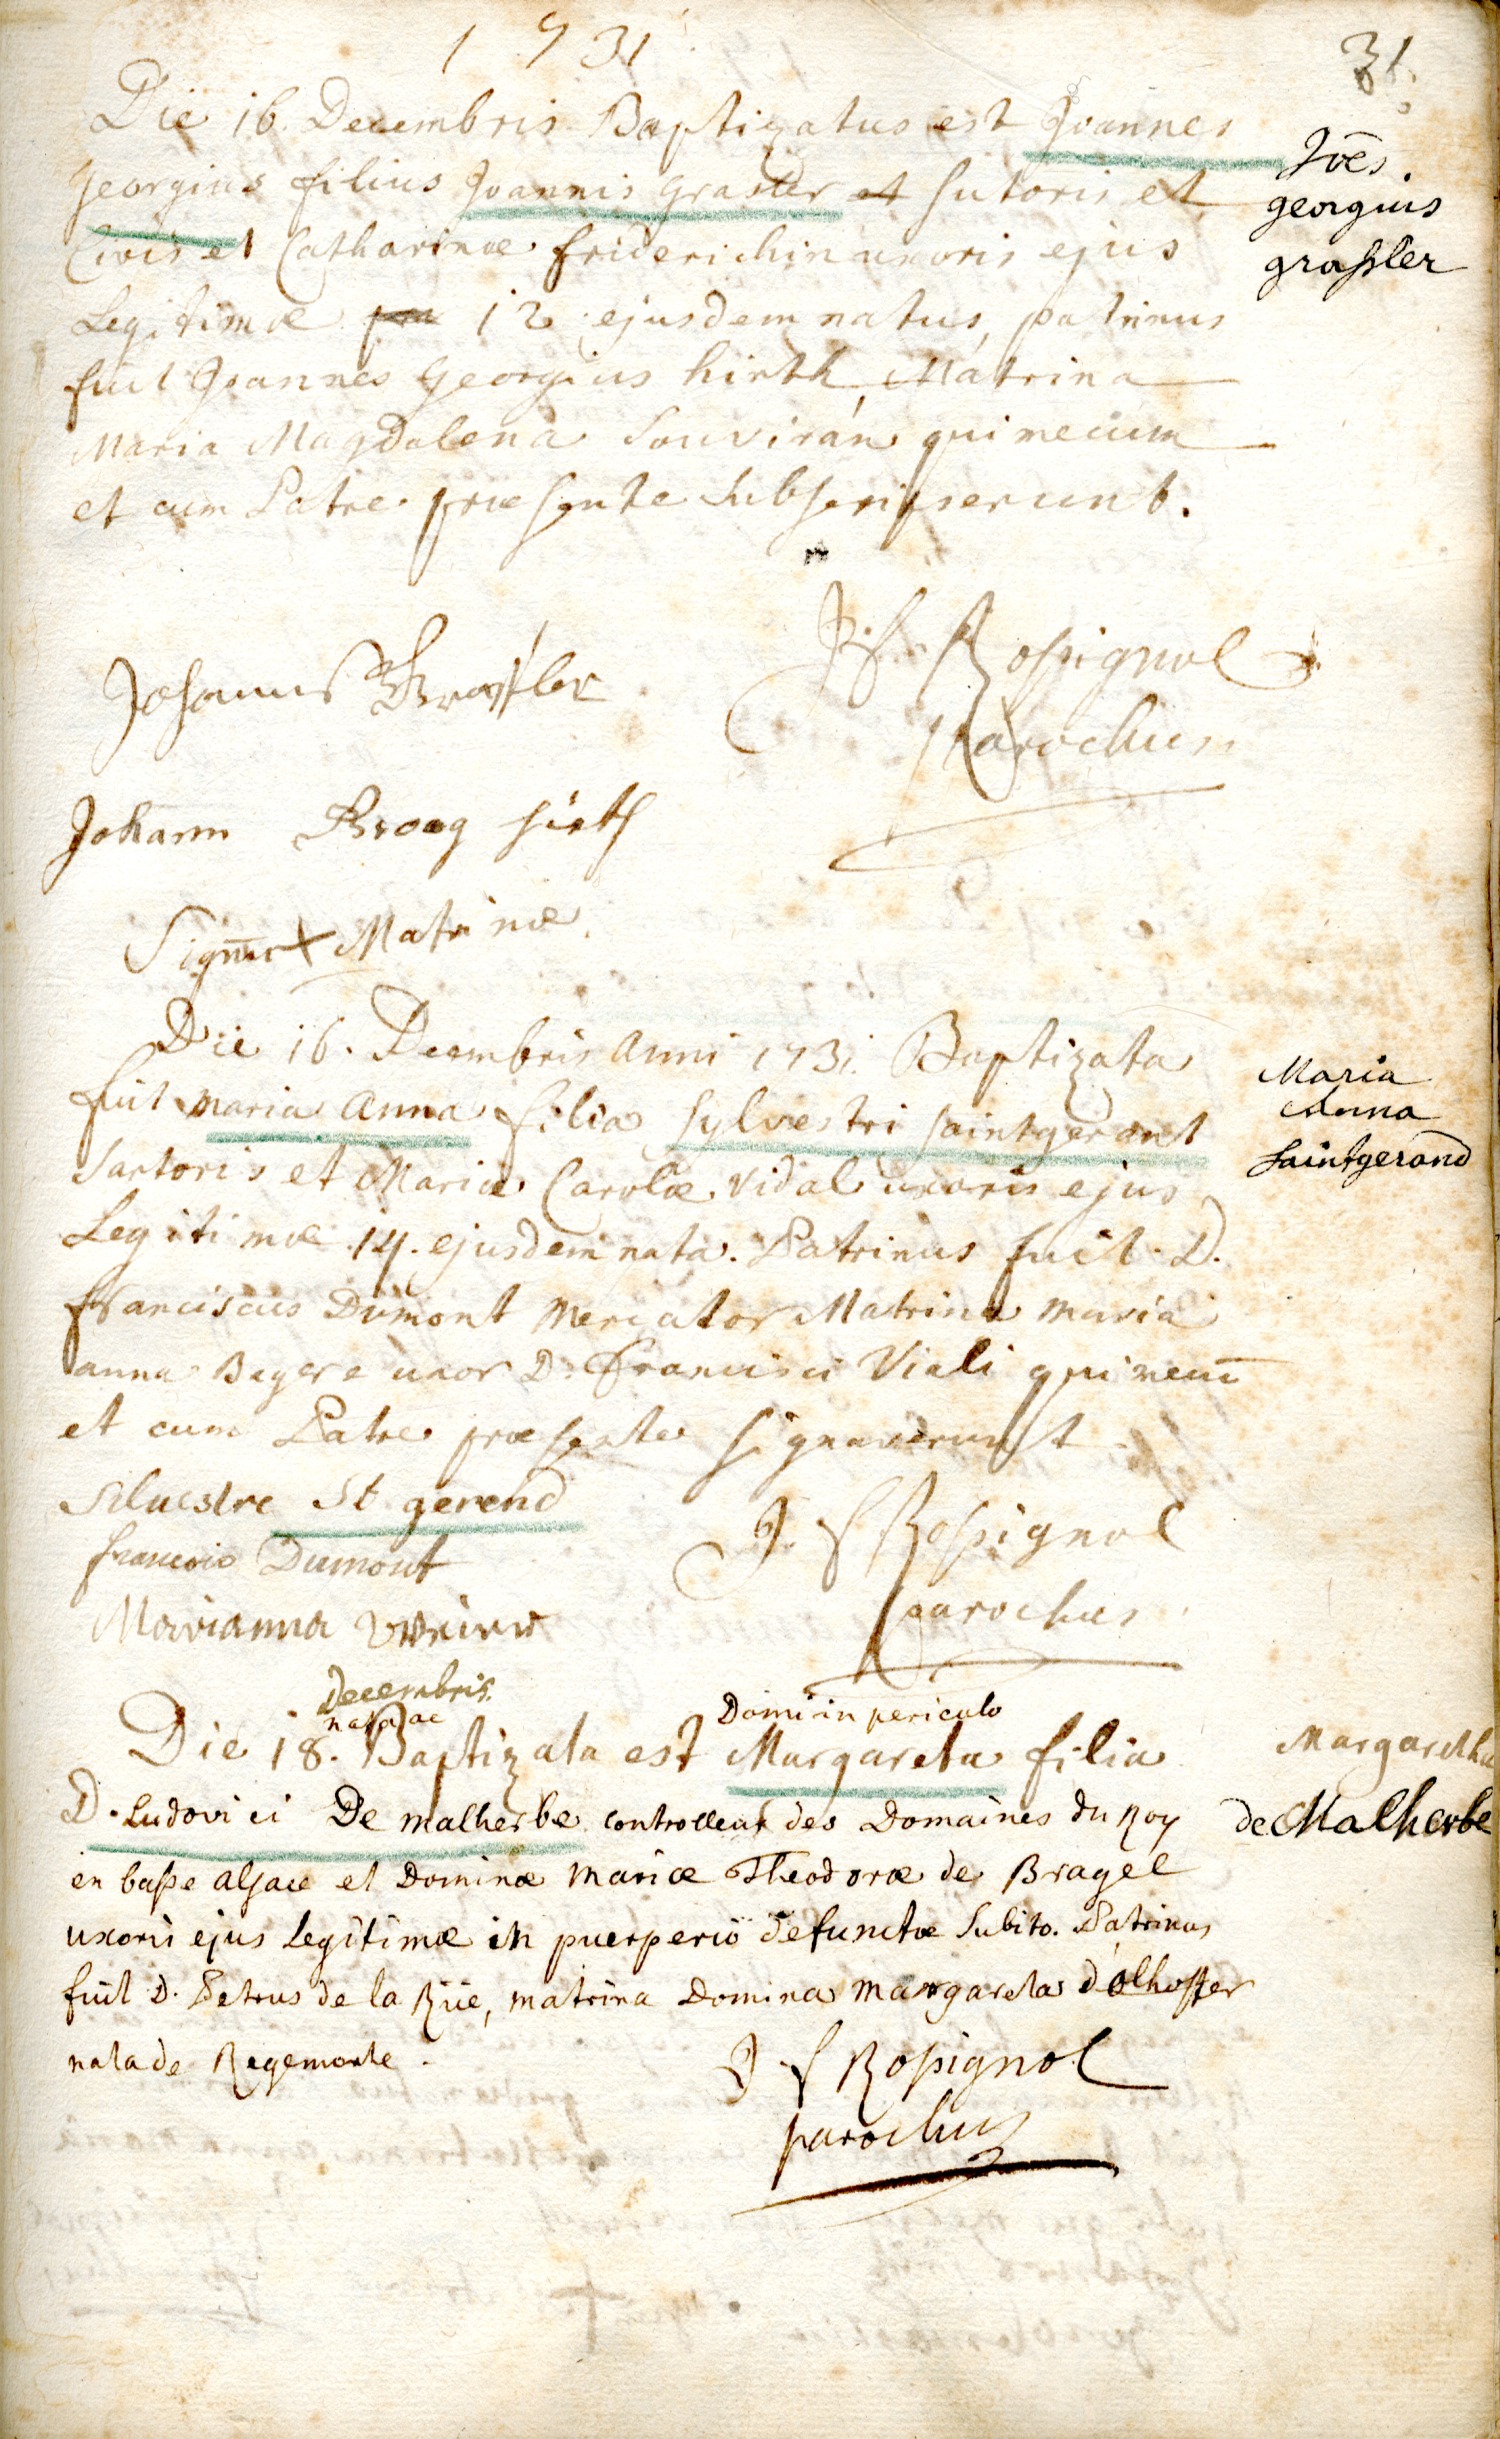 1731
31
Die 16. Decembris Baptizatus est Joannes
Georgius filius Joannis Grasler et sutoris et
Civis et Catharinæ friderichin uxoris ejus
Legitimæ 12 ejusdem natus, patrinus
fuit Joannes Georgius hirth, Matrina
Maria Magdalena Souviran qui mecum
et cum Patre præsente subscripserunt.
Joēs.
georgius
graßler
J. S. Roßignol
Parochus
Johannes Graßler
Johann Georg hirth
Signū + Matrinæ
Die 16. Decembris Anni 1731. Baptizata
fuit Maria Anna filia Sylvestri Saintgerant
Sartoris et Mariæ Carolæ Vidal uxoris ejus
Legitimæ 14. ejusdem nata. Patrinus fuit D.
franciscus Dumont Mercator Matrina Maria
anna Bayer e uxor D. Francisci Viali qui mecū
et cum Patre præsente signaverunt
Maria
Anna
Saintgerand
Siluestre St gerend
francois Dumont
Marianna
J. S Roßignol
parochus
Decembris
nata ac Domi in periculo
Die 18. Baptizata est Margareta filia
D. Ludovici De malherbe controlleur des Domaines du Roy
en baße alsace et Dominæ Mariæ Theodoræ de Bragel
uxoris ejus Legitimæ in puerperio defunctæ subito. Patrinus
fuit D. Petrus de la Rüe, matrina Domina Margareta d'olhoffer
nata de Regemorte.
Margaretha
de Malherbe
J S Roßignol
parochus